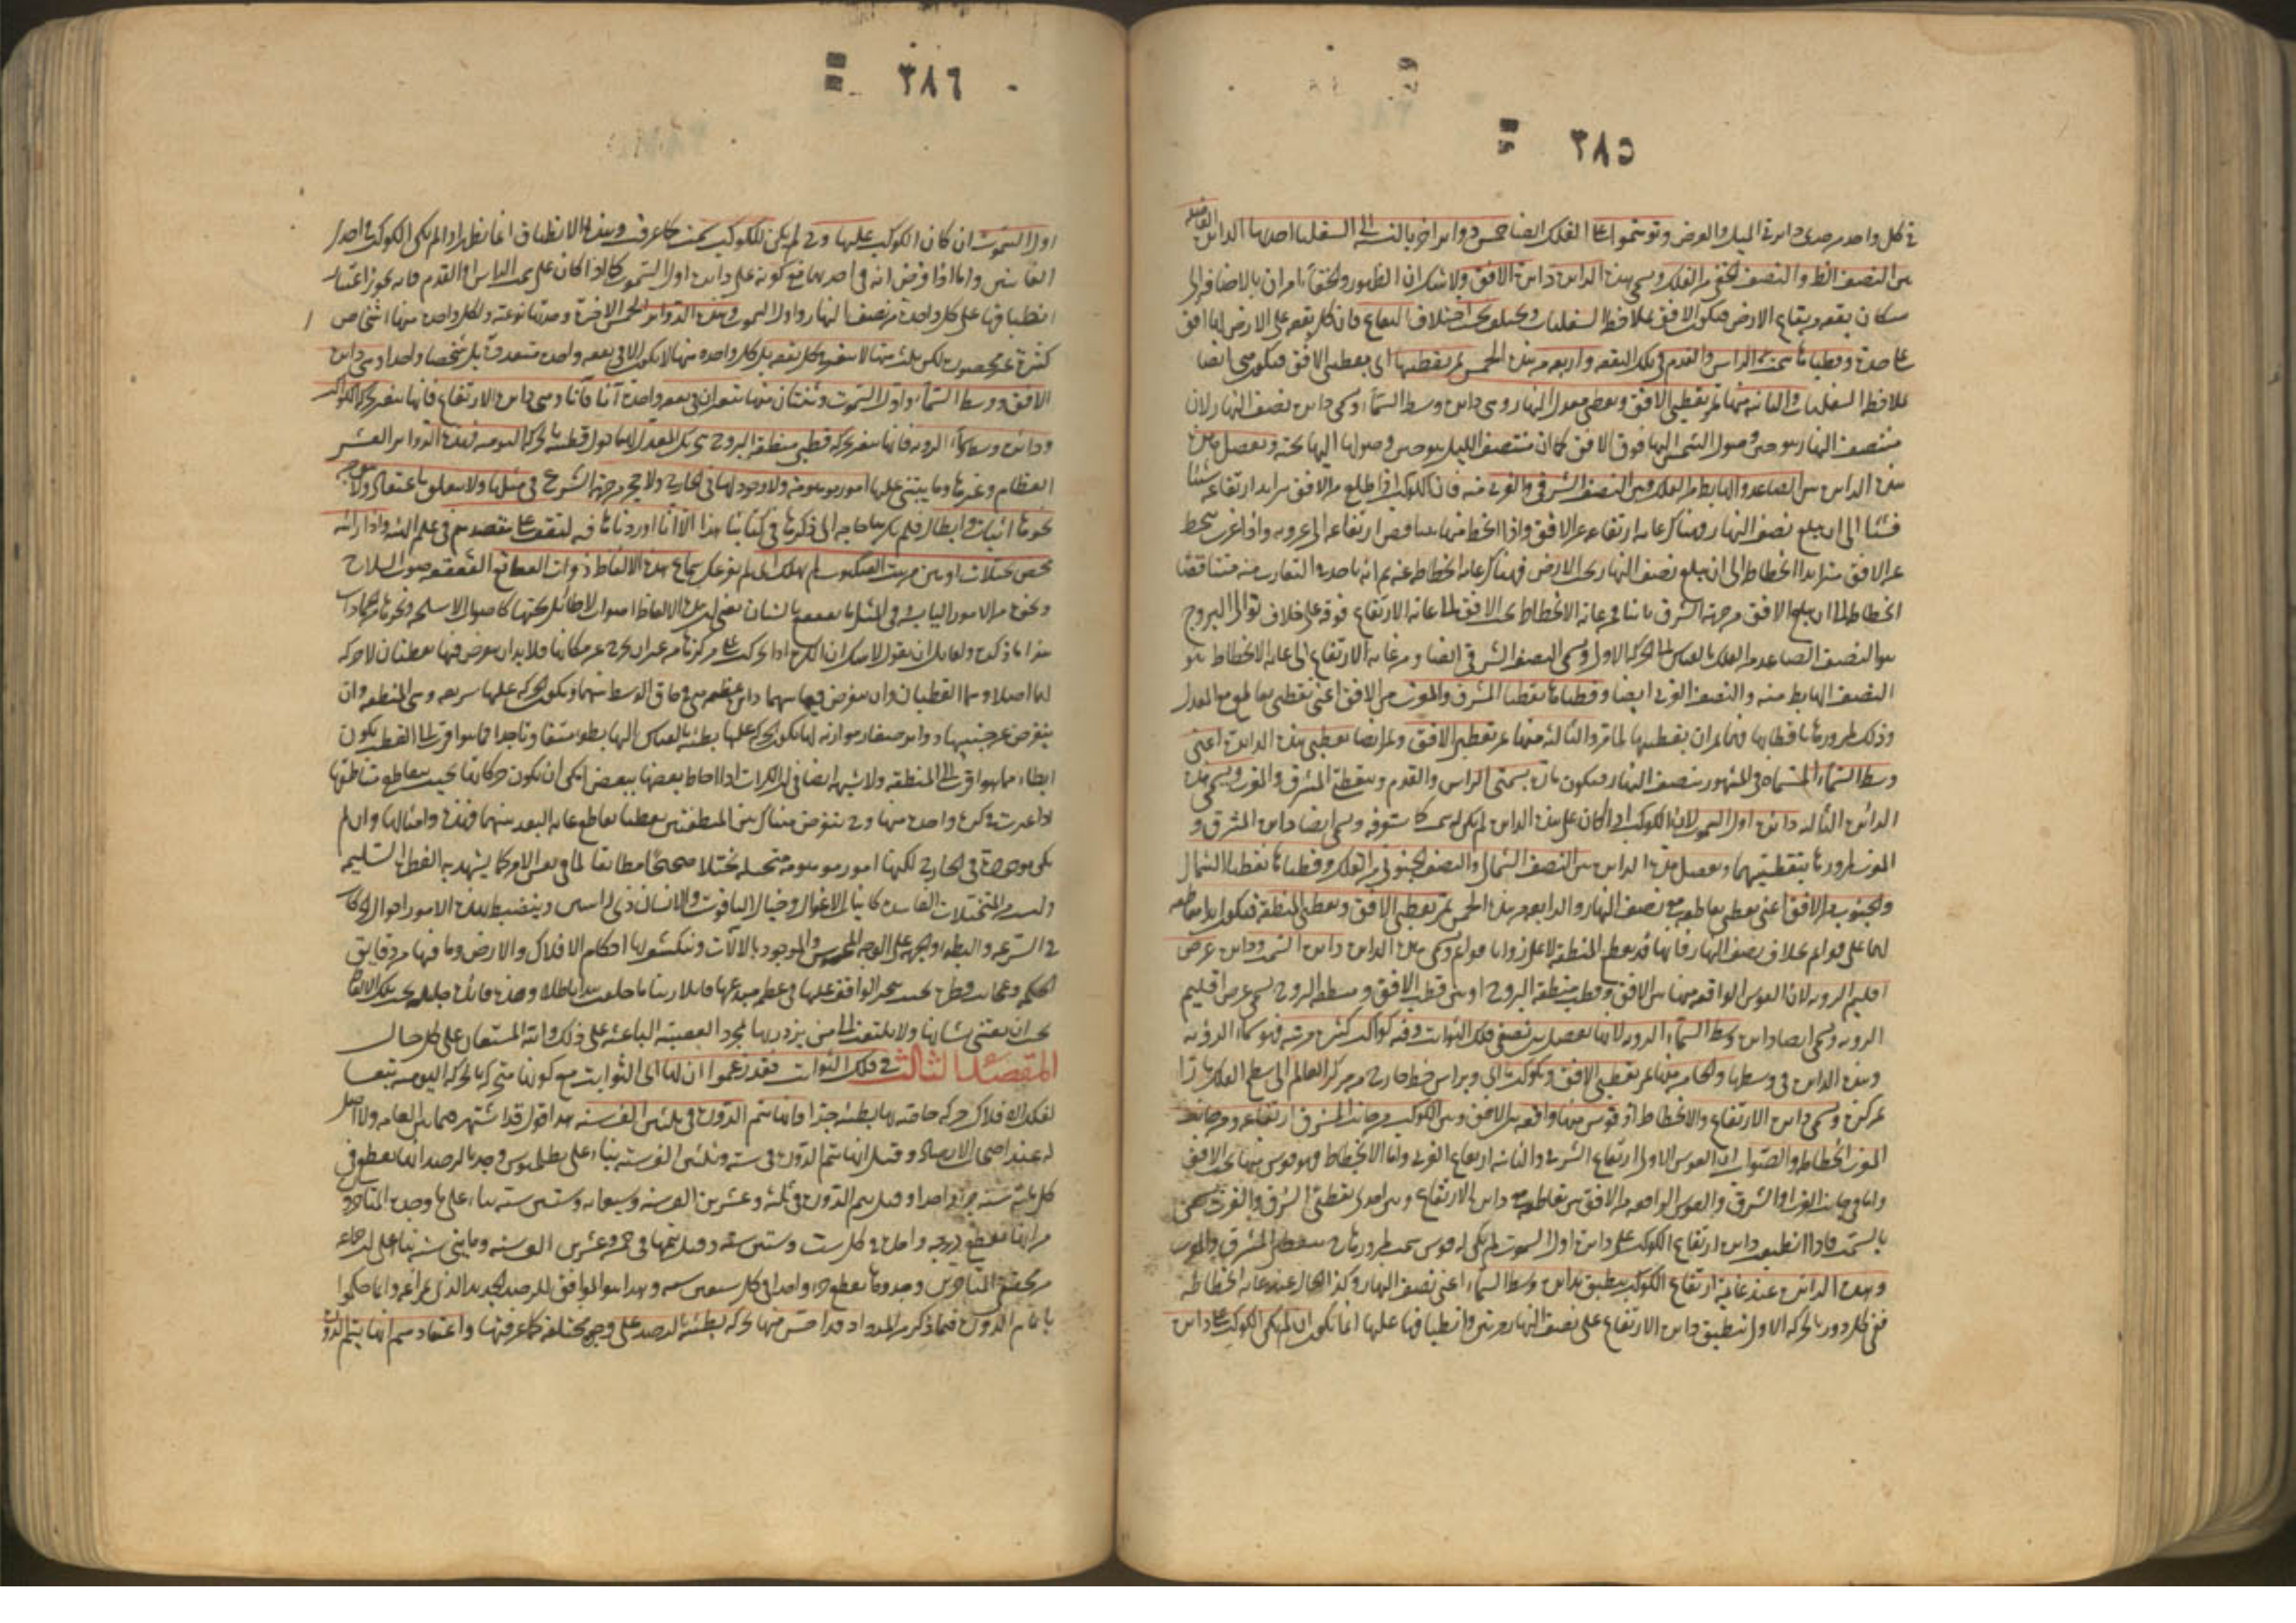 ٣٨٥
في كل واحد من حدى دائرة الميل والعرض وتوهموا على الفلك ايضا خمس دوائر اخر بالنسبة الى السفليات احديها الدائرة الفاصلة
بين النصف الظاهر والنصف الخفي من الفلك ويسمى هذه الدائرة دائرة الافق ولا شك ان الظهور والخفاء امران بالاضافة الى
سكان بقعة بقعة من بقاع الارض فيكون الافق بملاحظة السفليات ويختلف بحسب اختلاف البقاع فان كل بقعة على الارض لها افق
على حدة وقطباها سمت الراس والقدم في تلك البقعة واربعة من هذه الخمس تمر بقطبيها اى بقطبي الافق فيكون هي ايضا
بملاحظة السفليات والثانية منها تمر بقطبي الافق وبقطبي معدل النهار وهي دائرة وسط السماء وهي دائرة نصف النهار لان
منتصف النهار هو حين وصول الشمس اليها فوق الافق كما ان منتصف الليل هو حين وصولها اليها تحته وتفصل
هذه الدائرة بين الصاعد والهابط من الفلك وبين النصف الشرقي والغربي منه فان الكوكب اذا طلع من الافق يزايد ارتفاعه شيئا
فشيئا الى ان يبلغ نصف النهار وهناك غاية ارتفاعه عن الافق واذا انحط منها يتناقص ارتفاعه الى غروبه واذا غرب ينحط
عن الافق متزايدا انحطاطه الى ان يبلغ نصف النهار تحت الارض فهناك غاية انحطاطه عنه ثم انه ياخذ في التقارب منه متناقصا
انحطاطه الى ان يبلغ الافق من جهة الشرق ثانيا فمن غاية الانحطاط تحت الافق الى غاية الارتفاع فوقه على خلاف توالى البروج
هو النصف الصاعد من الفلك بالقياس الى الحركة الاولى ويسمى النصف الشرقي ايضا ومن غاية الارتفاع الى غاية الانحطاط هو
النصف الهابط منه والنصف الغربي ايضا وقطباها نقطتا المشرق والمغرب من الافق اعنى نقطتي تقاطعه مع المعدل
وذلك لمرورها باقطابهما فيمران بقطبيها لما مر والثالثة منها تمر بقطبي الافق وتمر ايضا بقطبي هذه الدائرة اعنى
وسط السماء المسماة في المشهور بنصف النهار فيكون مارة بسمتي الراس والقدم وبنقطتي المشرق والمغرب ويسمى هذه
الدائرة الثالثة دائرة اول السموت لان الكوكب اذا كان على هذه الدائرة لم يكن له سمت كما ستعرفه ويسمى ايضا دائرة المشرق و
المغرب لمرورها بنقطتيهما وتفصل هذه الدائرة بين النصف الشمالي والنصف الجنوبي من الفلك وقطباها نقطتا الشمال
والجنوب من الافق اعنى نقطتي تقاطعه مع نصف النهار والرابعة من هذه الخمس تمر بقطبي الافق وبقطبي المنطقة فيكون ابدا مقاطعة
لها على قوائم بخلاف نصف النهار فانها قد يقطع المنطقة لا على زوايا قوائم ويسمى هذه الدائرة دائرة السمت ودائرة عرض
اقليم الرؤية لان القوس الواقعة منها بين الافق وقطب منطقة البروج او بين قطب الافق ومنطقة البروج يسمى عرض اقليم
الرؤية ويسمى ايضا دائرة وسط السماء الرؤية لانها تفصل بين نصفي فلك الثوابت وفيه كواكب كثيرة مرئية فهو سماء الرؤية
وهذه الدائرة في وسطها والخامسة منها تمر بقطبي الافق وبكوكب ما اى وبراس خط خارج من مركز العالم الى سطح الفلك مارا
بمركزه ويسمى دائرة الارتفاع والانحطاط اذ قوس منها واقعة بين الافق وبين الكوكب من جانب المشرق ارتفاعه ومن جانب
المغرب انحطاطه والصواب ان القوس الاولى ارتفاعه الشرقي والثانية ارتفاعه الغربي واما الانحطاط فهو قوس منها تحت الافق
واما في جانب الغرب او الشرق والقوس الواقعة من الافق بين تقاطعه مع دائرة الارتفاع وبين احدى نقطتي الشرق والغرب يسمى
بالسمت فاذا انطبقت دائرة ارتفاع الكوكب على دائرة اول السموت لم يكن له قوس سمت لمرورها حينئذ بنقطتي المشرق والمغرب
وهذه الدائرة عند غاية ارتفاع الكوكب ينطبق بدائرة وسط السماء اعنى نصف النهار وكذا الحال عند غاية انحطاطه
ففي كل دورة بالحركة الاولى تنطبق دائرة الارتفاع على نصف النهار مرتين وانطباقها عليها انما يكون ان لم يكن الكوكب على دائرة
٣٨٦
اول السموت ان كان الكوكب عليها وح لم يكن للكوكب سمت كما عرفت وهذا الانطباق انما يظهر اذا لم يكن الكوكب في احدى
الغايتين واما اذا فرض انه في احديهما مع كونه على دائرة اول السموت كما اذا كان على سمت الراس او القدم فانه يجوز اعتبار
انطباقها على كل واحدة من نصف النهار واول السموت وهذه الدوائر الخمس الاخيرة وحدتها نوعية ولكل واحدة منها اشخاص
كثيرة غير محصورة لكن ثلث منها لا يتغير في كل بقعة بل كل واحدة منها لا يكون الا في بقعة واحدة متعددة بل شخصا واحدا وهي دائرة
الافق ووسط السماء واول السموت وثنتان منها يتغيران في بقعة واحدة آنا فآنا وهي دائرة الارتفاع فانها يتغير بحركة الكواكب
ودائرة وسط سماء الرؤية فانها يتغير بحركة قطبي منطقة البروج بحركة المعدل لانها حول قطبه بالحركة اليومية فهذه الدوائر العشر
العظام وغيرها وما يبتنى عليها امور موهومة ولا وجود لها في الخارج ولا حجر من جهة الشرع في مثلها ولا يتعلق باعتقاد ولا يتوجه
نحوها اثبات وابطال فلم يكن بنا حاجة الى ذكرها في كتابنا هذا الا انا اوردناها فيه لتقف على مقصدهم في علم الهيئة واذا رأيته
محض تخيلات اوهن من بيت العنكبوت لم يهلك اى لم يفزعك سماع هذه الالفاظ ذوات القعاقع القعقعة صوت السلاح
ونحوه من الامور اليابسة في المثل ما يقعقع بالشنان يعنى ان هذه الالفاظ اصوات لا طائل تحتها كاصوات الاسلحة ونحوها من الجمادات
هذا ما ذكره ولقائل ان يقول لا شك ان الكرة اذا تحركت على مركزها من غير ان يخرج عن مكانها فلا بد ان يفرض فيها نقطتان لا حركة
لها اصلا وهما القطبان وان يفرض فيما بينهما دائرة عظيمة هي في حاق الوسط منهما ويكون الحركة عليها سريعة وهي المنطقة وان
يفرض عن جنبتيها دوائر صغار موازية لها يكون الحركة عليها بطيئة بالقياس اليها بطؤا متفاوتا جدا فما هو اقرب الى القطب يكون
ابطاء مما هو اقرب الى المنطقة ولا شبهة ايضا في ان الكرات اذا احاط بعضها ببعض امكن ان يكون حركاتها بحيث يتقاطع مناطقها
اذا اعتبرت في كرة واحدة منها وح يفرض هناك بين المنطقتين نقطتا تقاطع وغاية البعد بينهما فهذه وامثالها وان لم
يكن موجودة في الخارج لكنها امور موهومة متخيلة تخيلا صحيحا مطابقا لما في نفس الامر كما يشهد به الفطرة السليمة
وليست من المتخيلات الفاسدة كانياب الاغوال وجبال الياقوت والانسان ذى الراسين وينضبط بهذه الامور احوال الحركات
في السرعة والبطؤ والجهة على الوجه المحسوس والمرصود بالآلات وينكشف بها احكام الافلاك والارض وما فيها من دقايق
الحكمة وعجائب الفطرة بحيث يتحير الواقف عليها في عظمة مبدعها قائلا ربنا ما خلقت هذا باطلا وهذه فائدة جليلة تحت تلك الالفاظ
يجب ان يعتنى بشانها ولا يلتفت الى من يزدريها بمجرد العصبية الباعثة على ذلك والله المستعان على كل حال
المقصد الثالث في فلك الثوابت فقد زعموا ان لها اى الثوابت مع كونها متحركة بالحركة اليومية تبعا
لفلك الافلاك حركة خاصة بها بطيئة جدا فانها تتم الدورة في ثلثين الف سنة هذا قول قد اشتهر فيما بين العامة ولا اصل
له عند اصحاب الارصاد وقيل انها تتم الدورة في ستة وثلثين الف سنة بناء على بطلميوس وجد بالرصد انها يقطع في
كل مائة سنة جزءا واحدا وقيل يتم الدورة في ثلثة وعشرين الف سنة وسبعمائة وستين سنة بناء على ما وجده المتأخرون
من انها تقطع درجة واحدة في كل ست وستين سنة وقيل تتمها في خمسة وعشرين الف سنة ومايتي سنة بناء على ان جماعة
من محققي المتأخرين وجدوها يقطع جزءا واحدا في كل سبعين سنة وهذا هو الموافق للرصد الجديد الذى بمراغة وانما حكموا
بانها يتم الدورة فيما ذكر من المدد اذ قد احس منها بحركة بطيئة بالرصد على وجوه مختلفة كما عرفتها واعتقادهم انها يتم الدورة